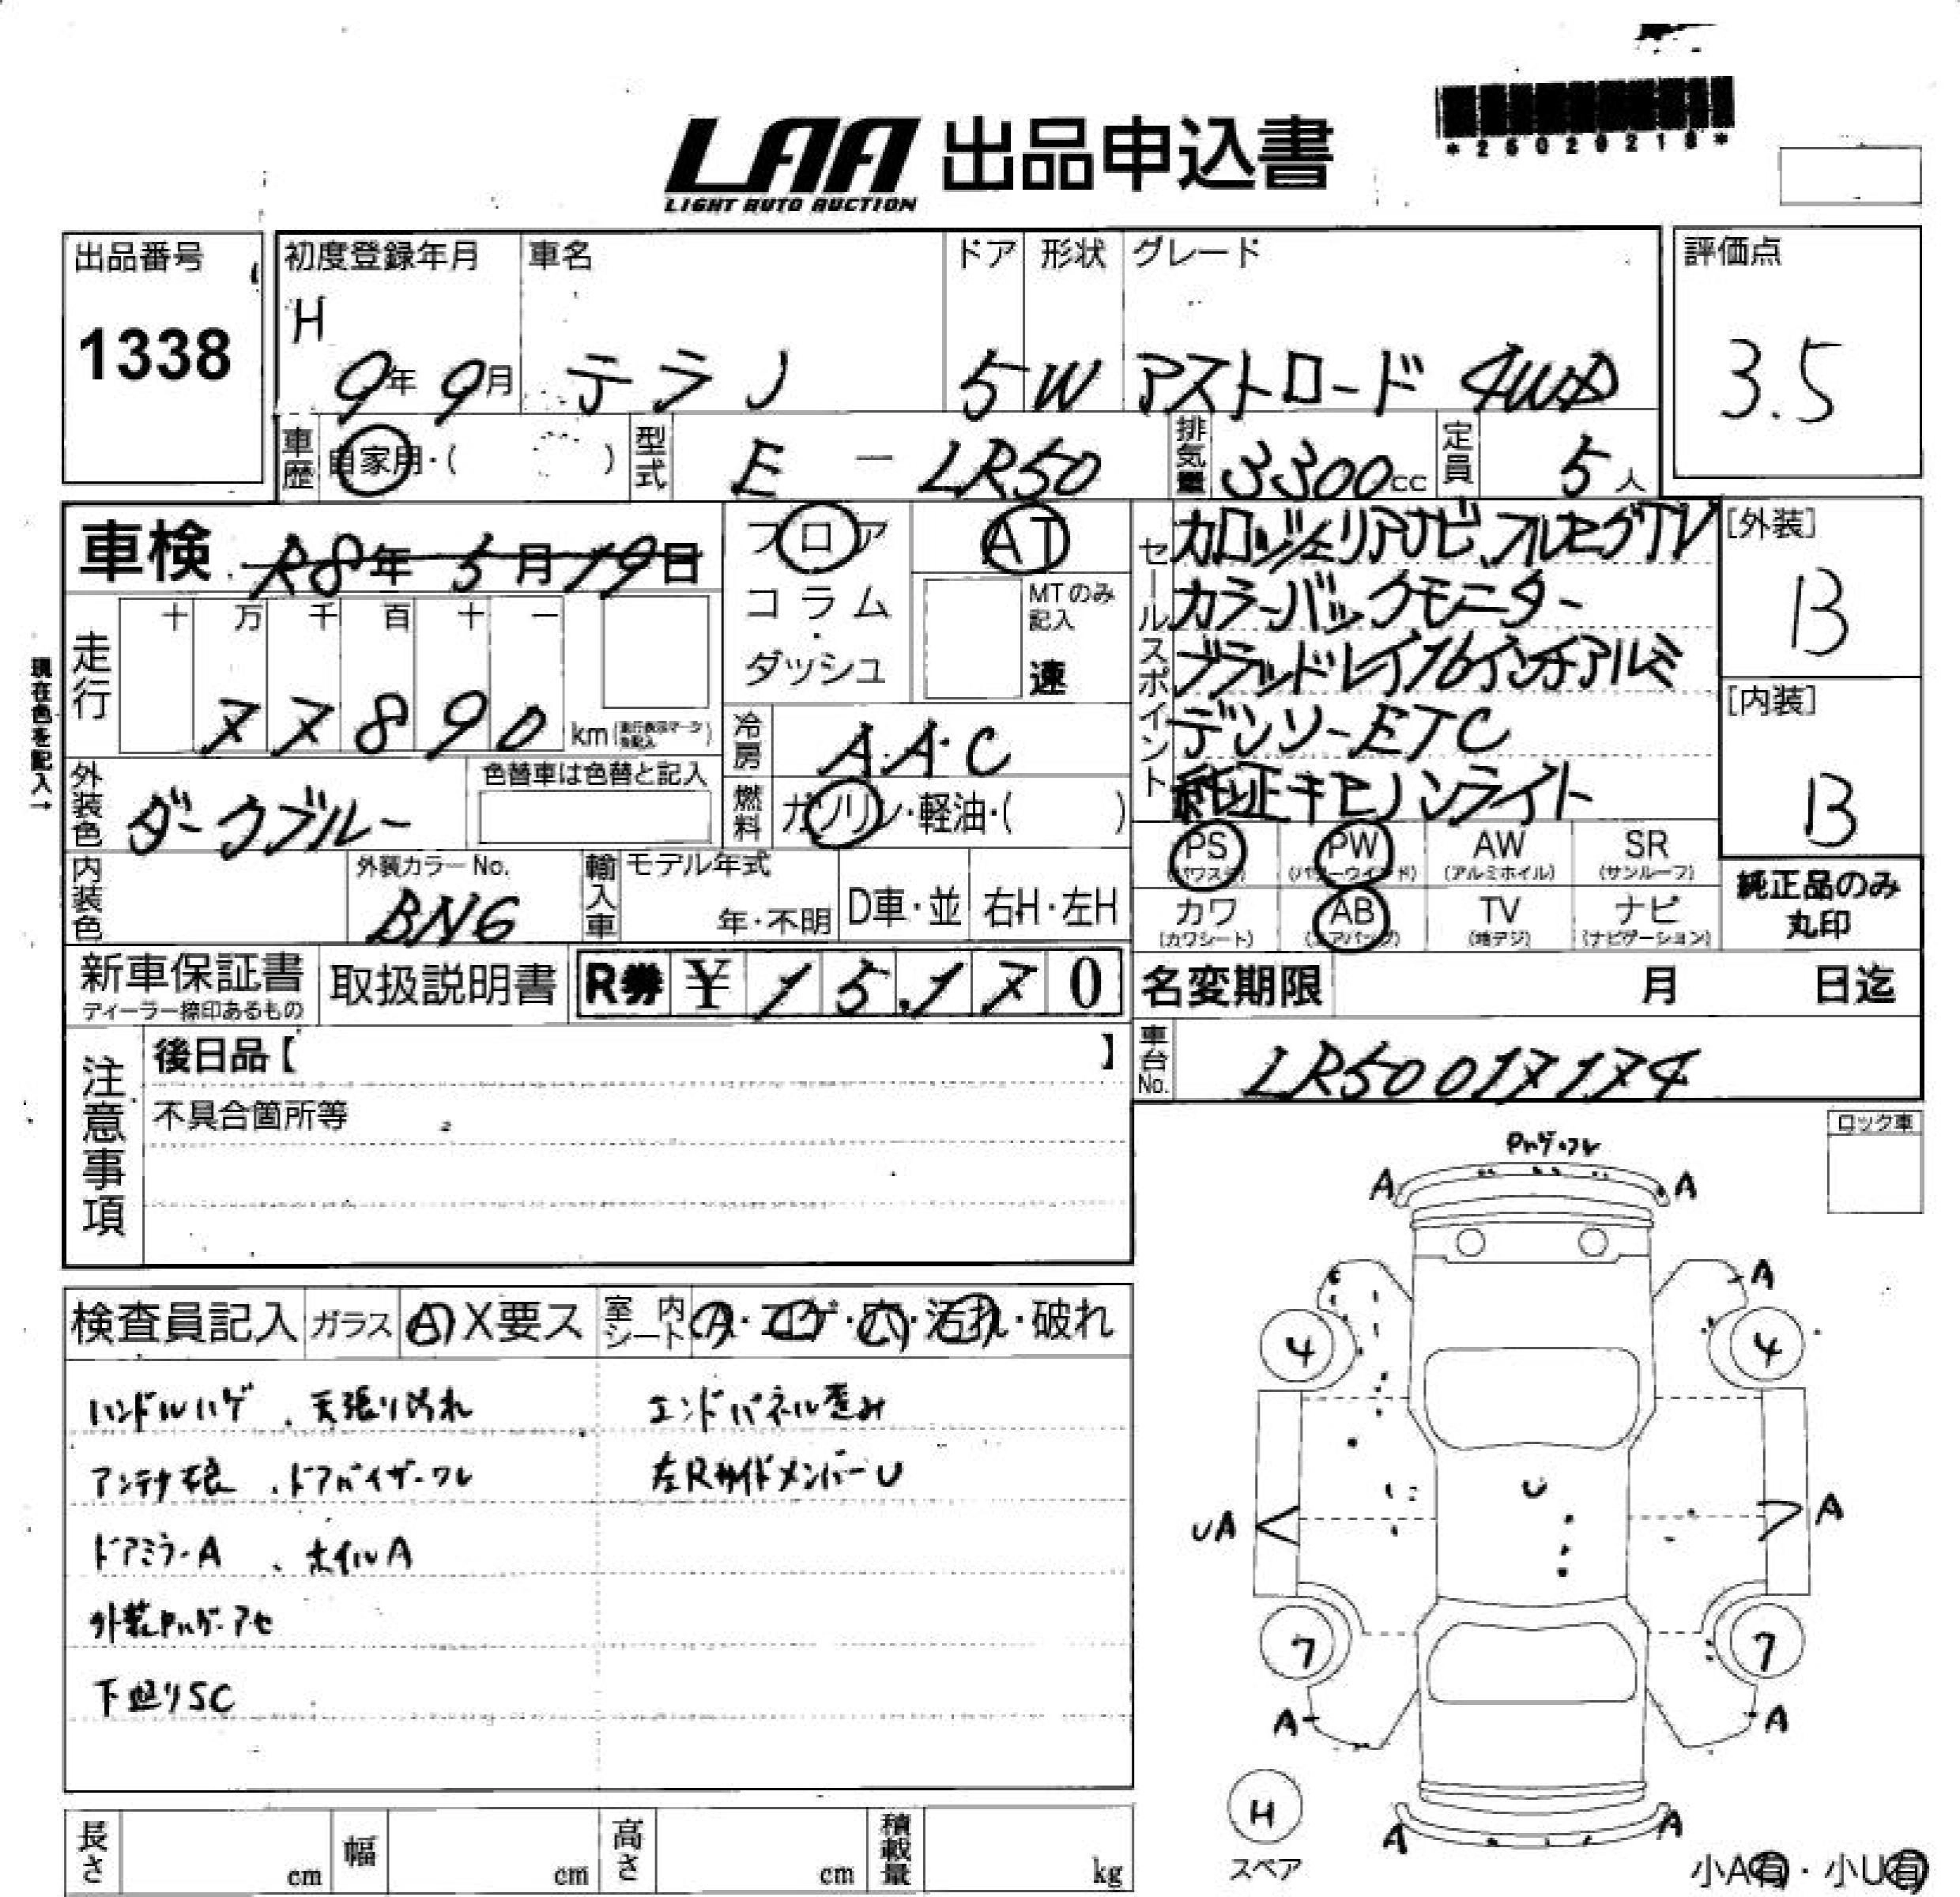 LAA 出品申込書
LIGHT AUTO AUCTION
*26020218*
出品番号
1338
初度登録年月
H
9年 9月
車名
テラノ
ドア
5
形状
W
グレード
アストロード 4WD
評価点
3.5
車歴 自家用・( )
型式 E - LR50
排気量 3300cc
定員 5人
車検 R8年 5月 19日
フロア
コラム
・
ダッシュ
AT
MTのみ記入
速
セールスポイント
カロッツェリアナビ、フルセグTV
カラーバックモニター
ブラッドレイ16インチアルミ
デンソーETC
純正キセノンライト
[外装]
B
[内装]
B
現在色を記入→
走行
十 万 千 百 十 一
77890 km
冷房 A・A・C
燃料 ガソリン・軽油・( )
外装色 ダークブルー
色替車は色替と記入
内装色
外装カラーNo.
BN6
輸入車
モデル年式
年・不明
D車・並
右H・左H
PS (パワステ)
PW (パワーウインド)
AW (アルミホイル)
SR (サンルーフ)
カワ (カワシート)
AB (エアバッグ)
TV (地デジ)
ナビ (ナビゲーション)
純正品のみ
丸印
新車保証書
ディーラー捺印あるもの
取扱説明書
R券 ¥ 15,170
名変期限 月 日迄
車台No. LR50 017174
注意事項
後日品【 】
不具合箇所等
ロック車
検査員記入
ガラス A X要ス
室内シート A・コゲ・穴・汚れ・破れ
ハンドルハゲ 、天張り汚れ
エンドパネル歪み
アンテナ根 、ドアバイザーワレ
左RサイドメンバーU
ドアミラーA 、ホイルA
外装Pハゲ・アセ
下廻りSC
Pハゲ・ワレ
A A
A
4 4
U
UA A
7 7
A A
H
スペア
A A
小A有・小U有
長さ cm
幅 cm
高さ cm
積載量 kg